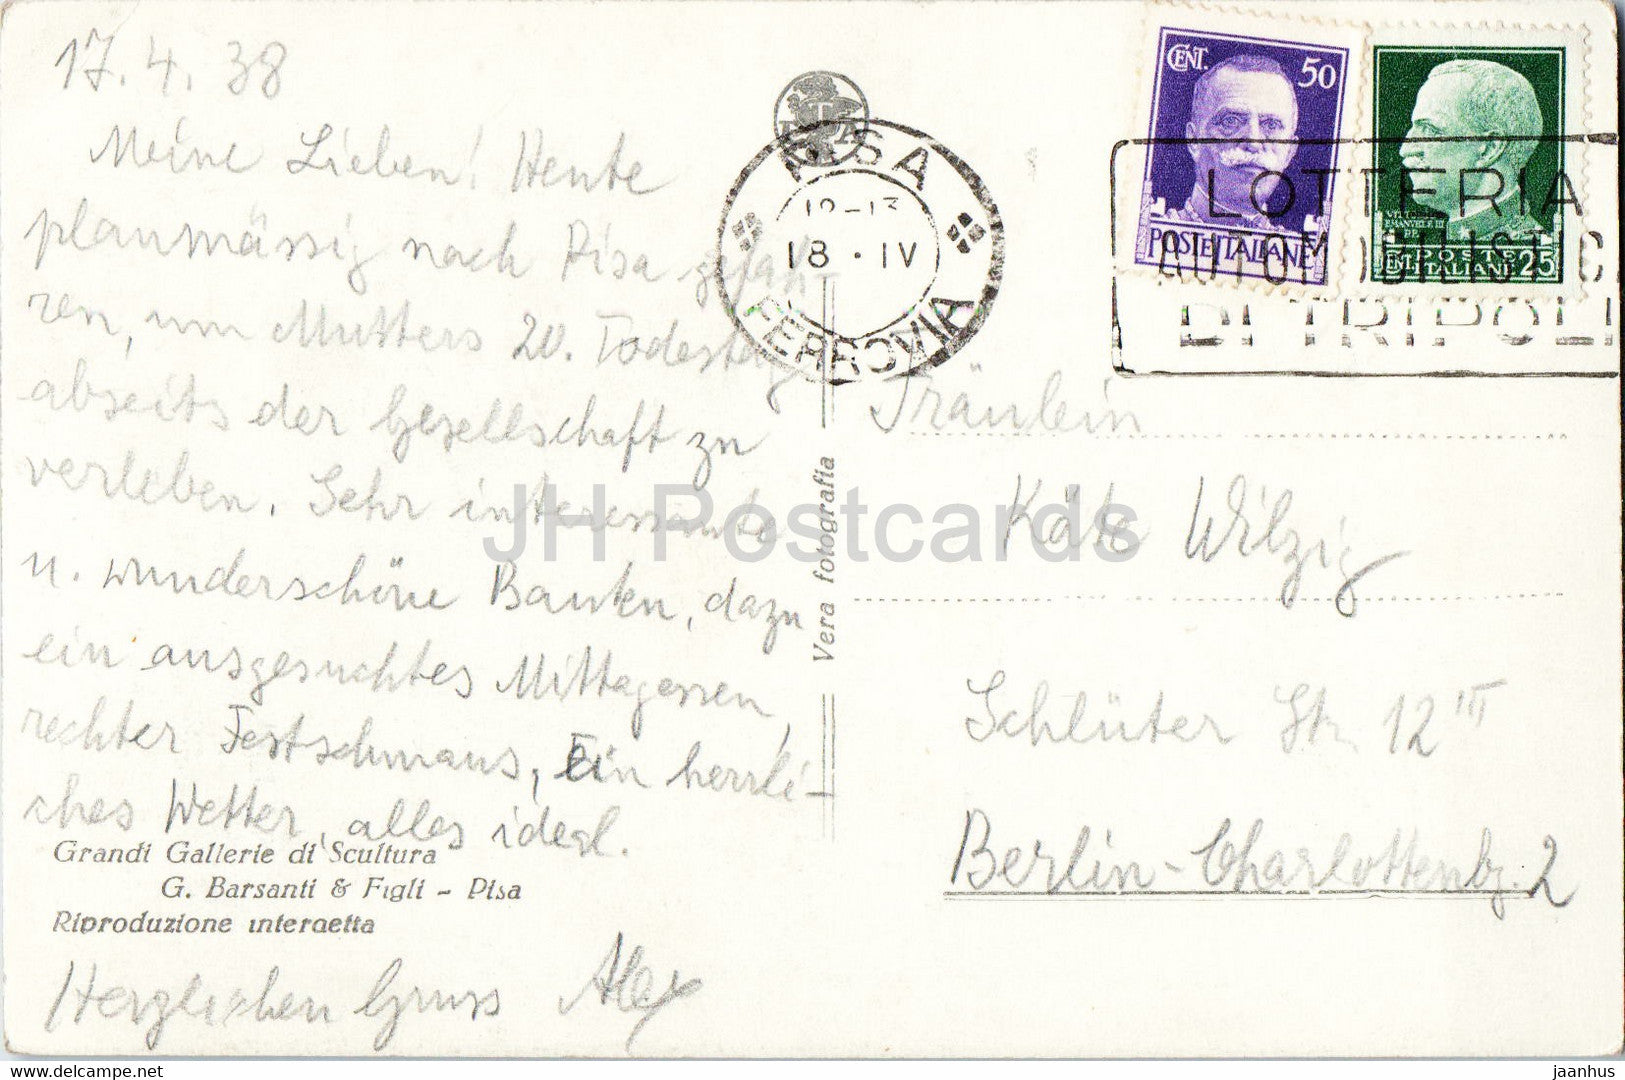 17.4.38
Meine Lieben! Heute
planmässig nach Pisa gefah-
ren, um Mutters 20. Todestag
abseits der Gesellschaft zu
verleben. Sehr interessante
u. wunderschöne Bauten, dazu
ein ausgesuchtes Mittagessen,
rechter Festschmaus, Ein herrli-
ches Wetter, alles ideal.
Grandi Gallerie di Scultura
G. Barsanti & Figli - Pisa
Riproduzione interdetta
Herzlichen Gruss Alex
Vera fotografia
PISA
18 · IV
FERROVIA
CENT. 50
POSTE ITALIANE
POSTE
CENT. ITALIANE 25
LOTTERIA
AUTOMOBILISTIC
DI TRIPOLI
Fräulein
Käte Wilzig
Schlüter Str. 12 III
Berlin-Charlottenbg. 2
JH Postcards
www.delcampe.net
jaanhus